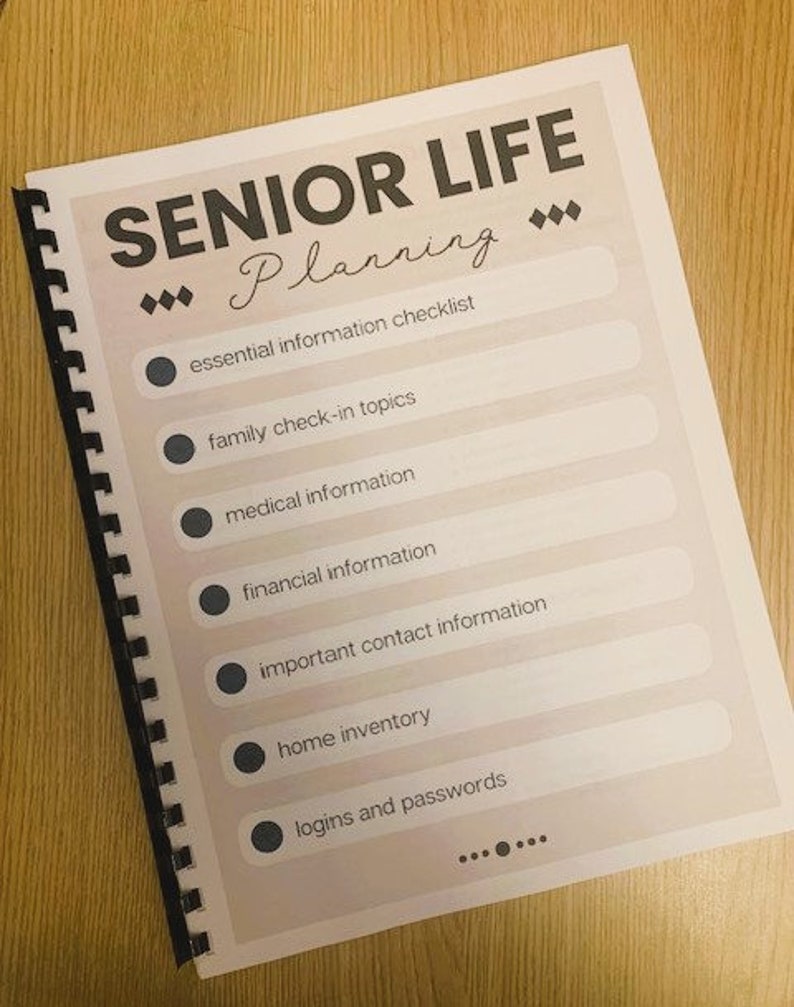 SENIOR LIFE
Planning
essential information checklist
family check-in topics
medical information
financial information
important contact information
home inventory
logins and passwords